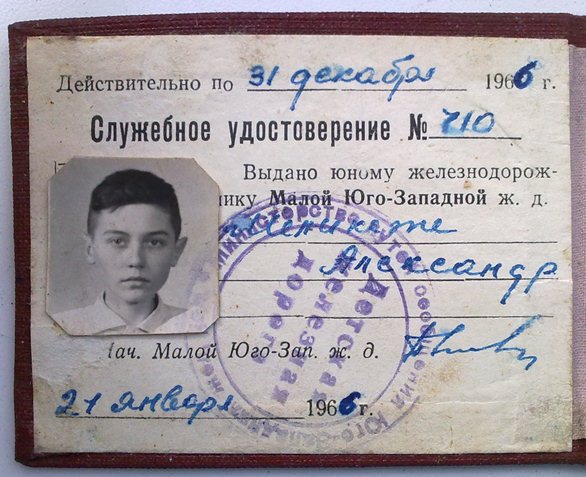 Действительно по 31 декабря 1966 г.
Служебное удостоверение № 710
Выдано юному железнодорож-
нику Малой Юго-Западной ж. д.
Александр
Нач. Малой Юго-Зап. ж. д.
21 января 1966 г.
Министерство путей сообщения Юго-Западн
Детская
железная
дорога